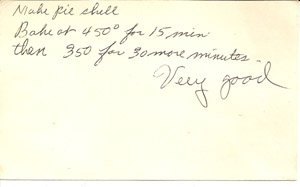 Make pie shell
Bake at 450° for 15 min.
then 350 for 30 more minutes.
Very good